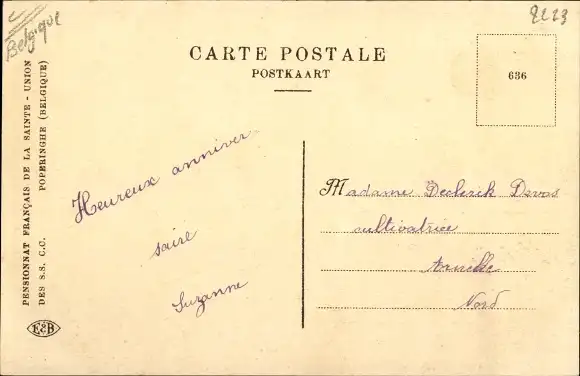 Belgique
8223
CARTE POSTALE
POSTKAART
636
PENSIONNAT FRANÇAIS DE LA SAINTE - UNION
DES S.S. C.C. POPERINGHE (BELGIQUE)
E&B
Heureux anniver
saire
Suzanne
Madame Declerik Devos
cultivatrice
Nord